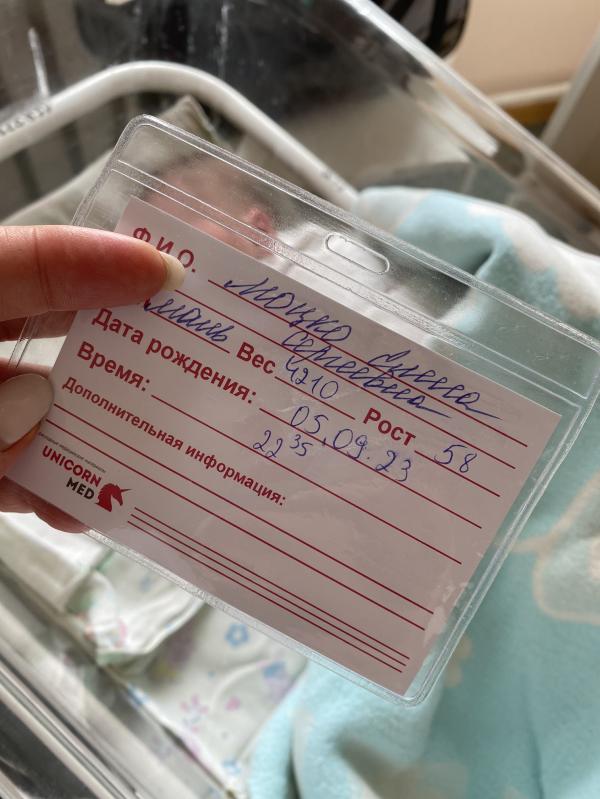 Ф.И.О. Моцко
Сергеевна
Вес 4210 Рост 58
Дата рождения: 05.09.23
Время: 22 35
Дополнительная информация:
UNICORN
MED